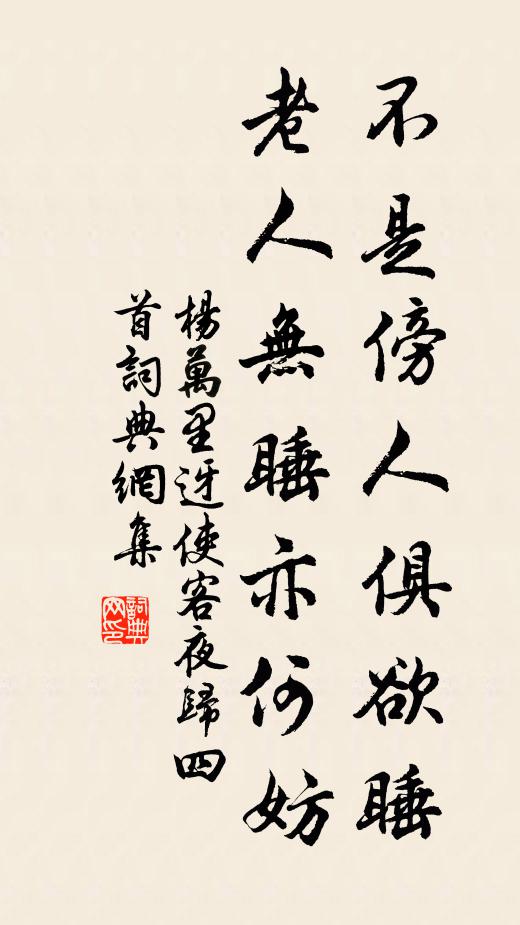 不是傍人俱欲睡
老人無睡亦何妨
楊萬里迓使客夜歸四
首詞典網集
詞典
网印